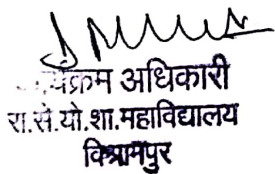 अधिकारी
रा.से.यो.शा.महाविद्यालय
विश्रामपुर